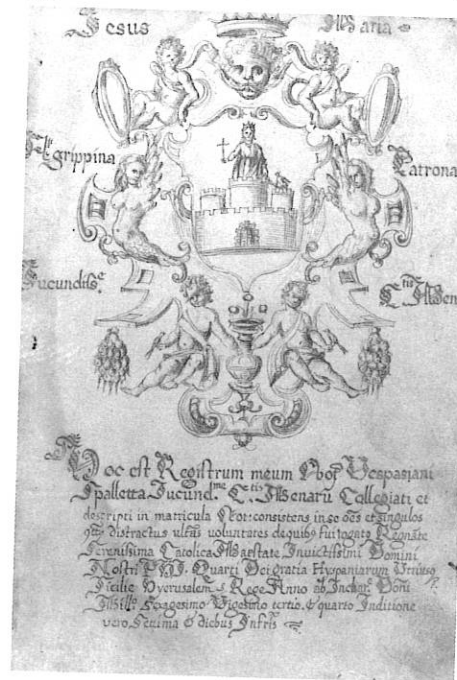 Jesus Maria
Agrippina Patrona
Jucundiss.e C.tis Men
Hoc est Registrum meum Not Vespasiani
Spalletta Jucund.me C.tis Menarũ Collegiati et
descripti in matricula Not: consistens in se oẽs et singulos
distractus voluntates de quibus fui rogatus Regnãte
Serenissima Catolica Maestate Invictissimi Domini
Nostri Quarti Dei gratia Hyspaniarum Utriusq
Sicilie Hyerusalem Rege Anno ab Incar.e Dom̃i
Mill.o Sexagesimo Vigesimo tertio, & quarto Inditione
vero Setima & diebus Infris